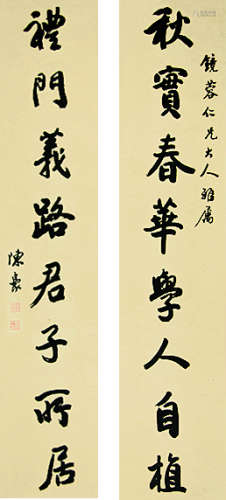 鏡蓉仁兄大人雅属
秋實春華學人自植
禮門義路君子所居
陳豪